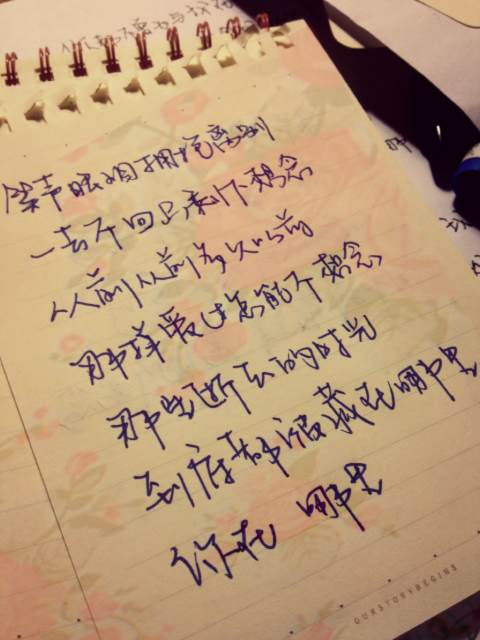 笑声眼泪拥抱离别
一去不回只剩下想念
从前从前多久以前
那样爱过怎能不想念
那些逝去的时光
到底都被藏在哪里
你在 哪里
OURSTORYBEGINS